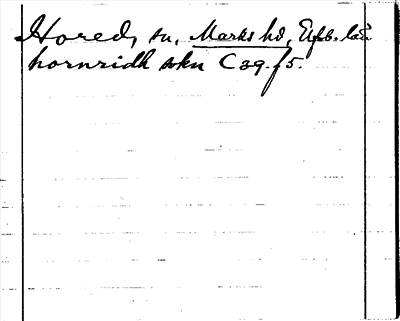 Hored, sn, Marks hd, Ujsb. län
hornridh skn C 39. f 5.